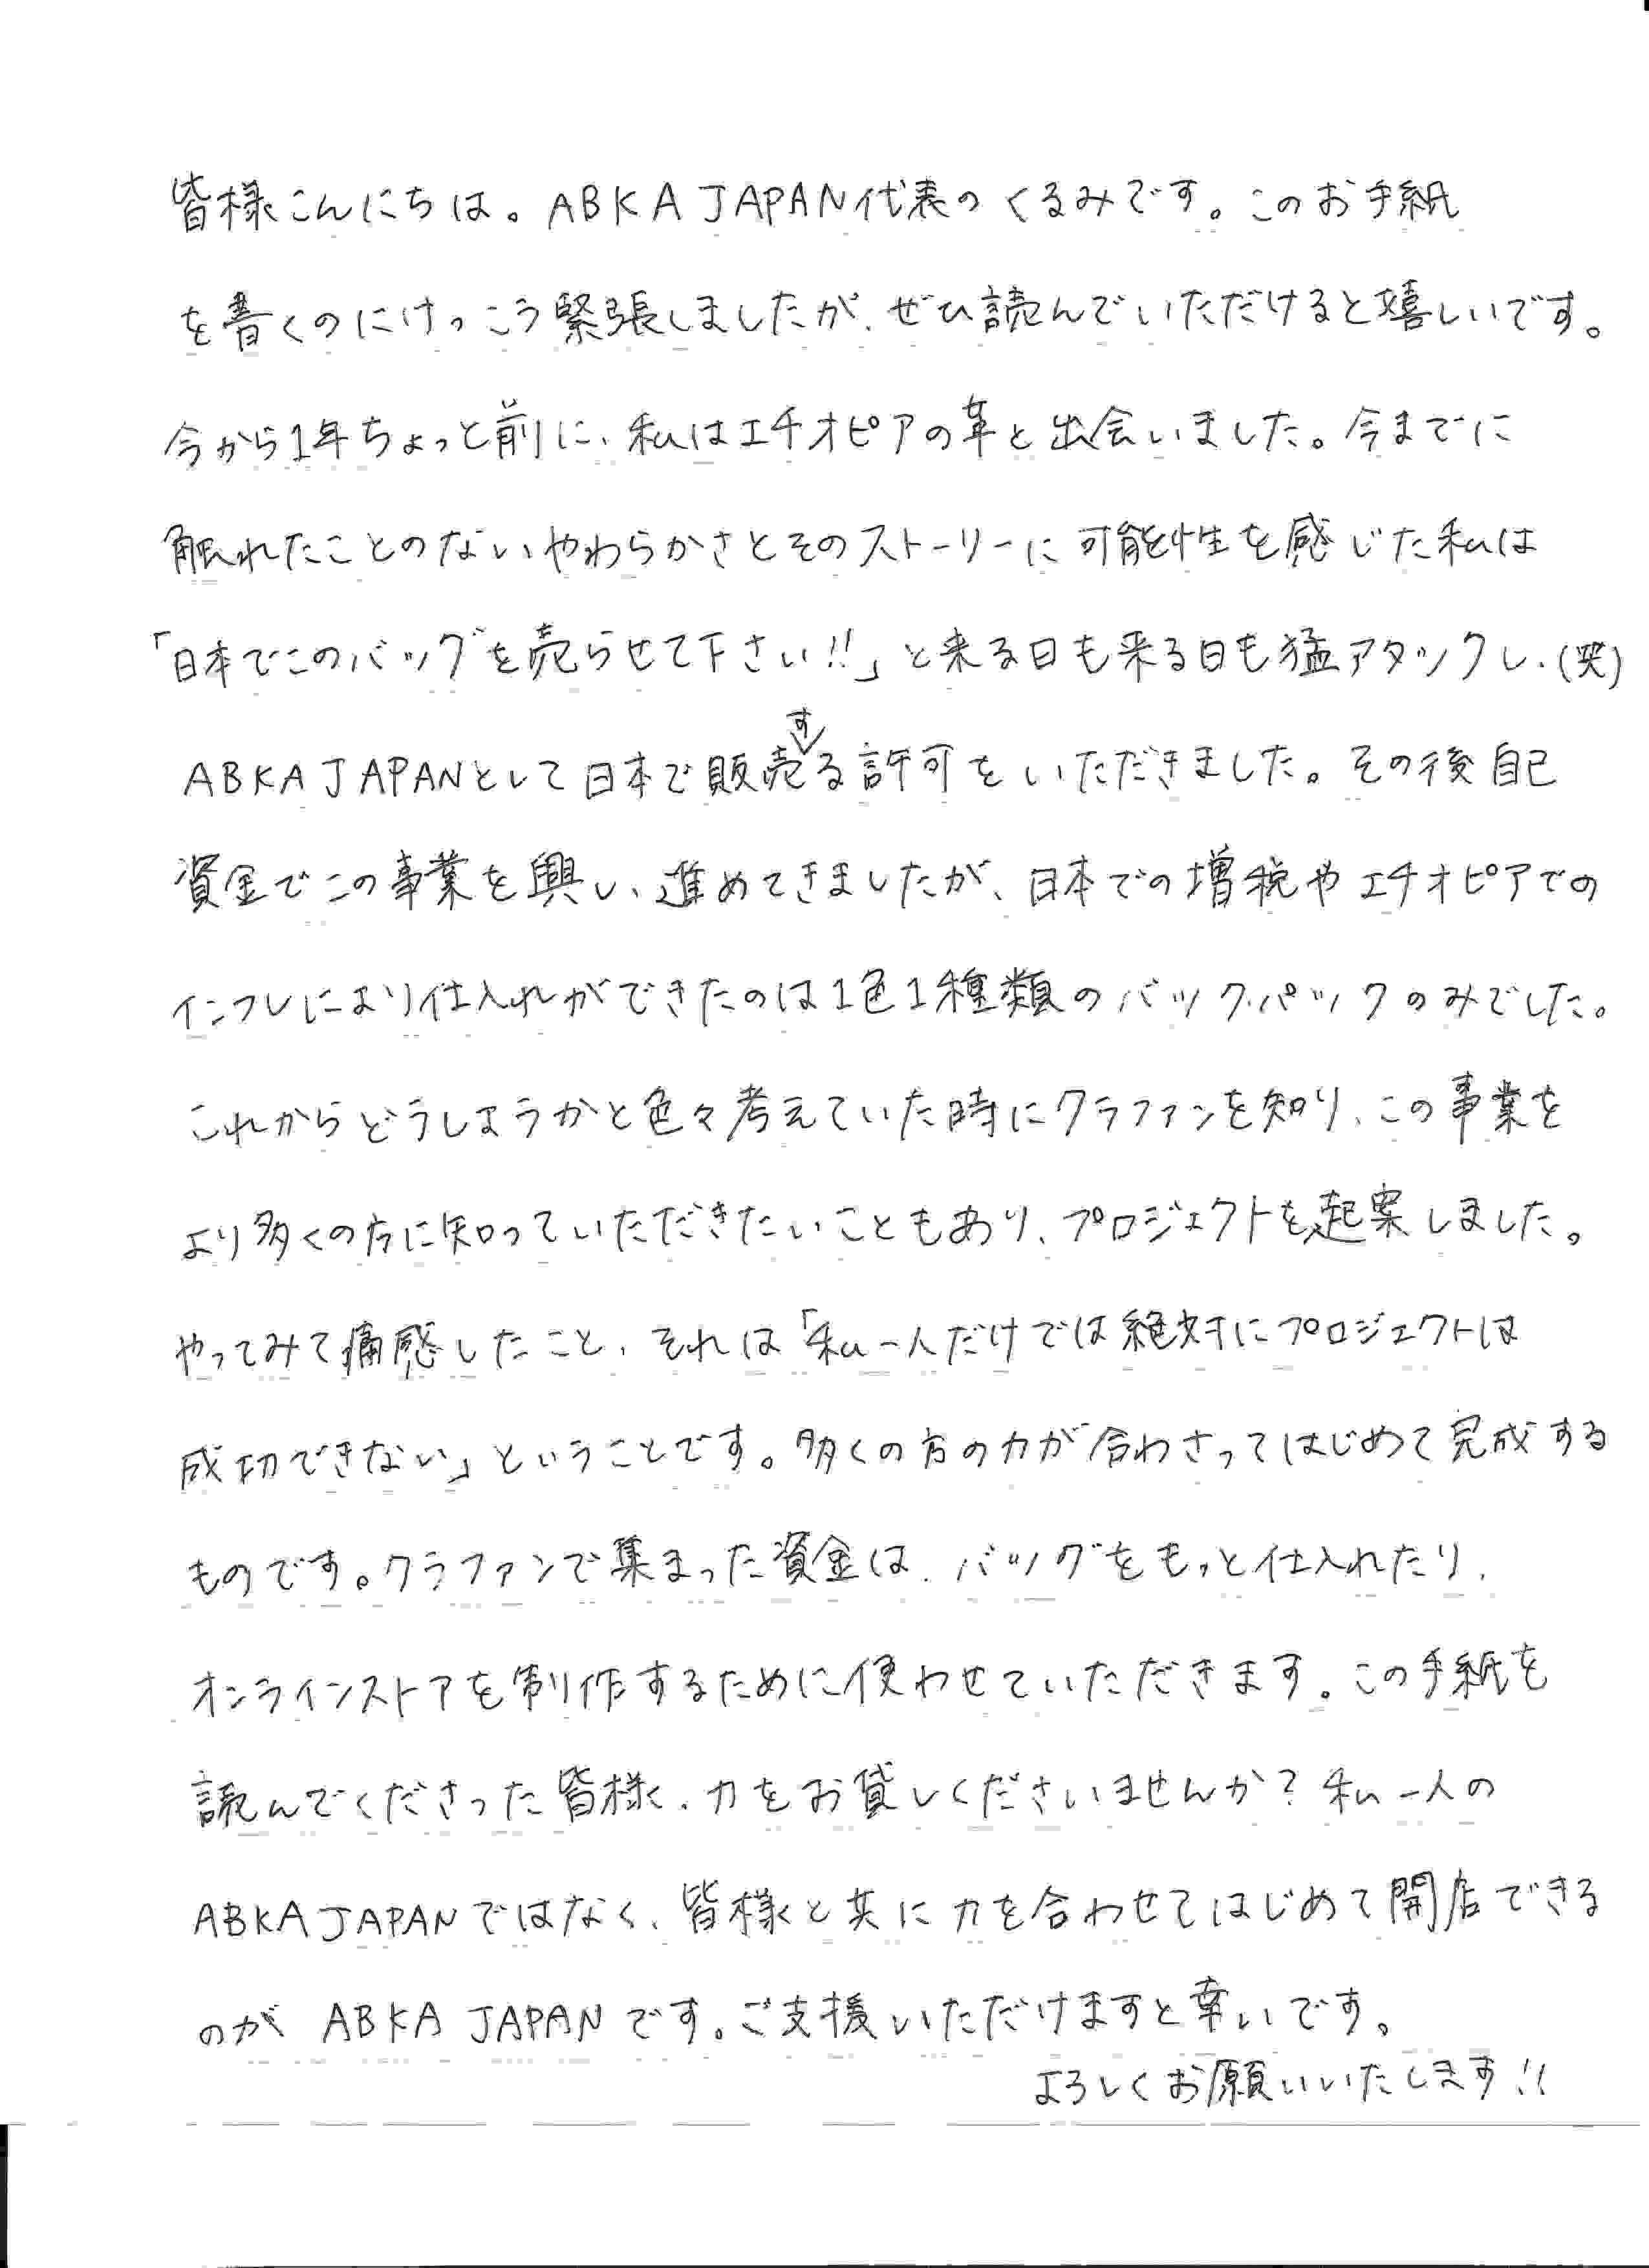 皆様こんにちは。ABKA JAPAN代表のくるみです。このお手紙
を書くのにけっこう緊張しましたが、ぜひ読んでいただけると嬉しいです。
今から1年ちょっと前に、私はエチオピアの革と出会いました。今までに
触れたことのないやわらかさとそのストーリーに可能性を感じた私は
「日本でこのバッグを売らせて下さい!!」と来る日も来る日も猛アタックし、(笑)
ABKA JAPANとして日本で販売する許可をいただきました。その後自己
資金でこの事業を興し、進めてきましたが、日本での増税やエチオピアでの
インフレにより仕入れができたのは1色1種類のバックパックのみでした。
これからどうしようかと色々考えていた時にクラファンを知り、この事業を
より多くの方に知っていただきたいこともあり、プロジェクトを起案しました。
やってみて痛感したこと、それは「私一人だけでは絶対にプロジェクトは
成功できない」ということです。多くの方の力が合わさってはじめて完成する
ものです。クラファンで集まった資金は、バッグをもっと仕入れたり、
オンラインストアを制作するために使わせていただきます。この手紙を
読んでくださった皆様、力をお貸しくださいませんか?私一人の
ABKA JAPANではなく、皆様と共に力を合わせてはじめて開店できる
のが ABKA JAPANです。ご支援いただけますと幸いです。
よろしくお願いいたします!!